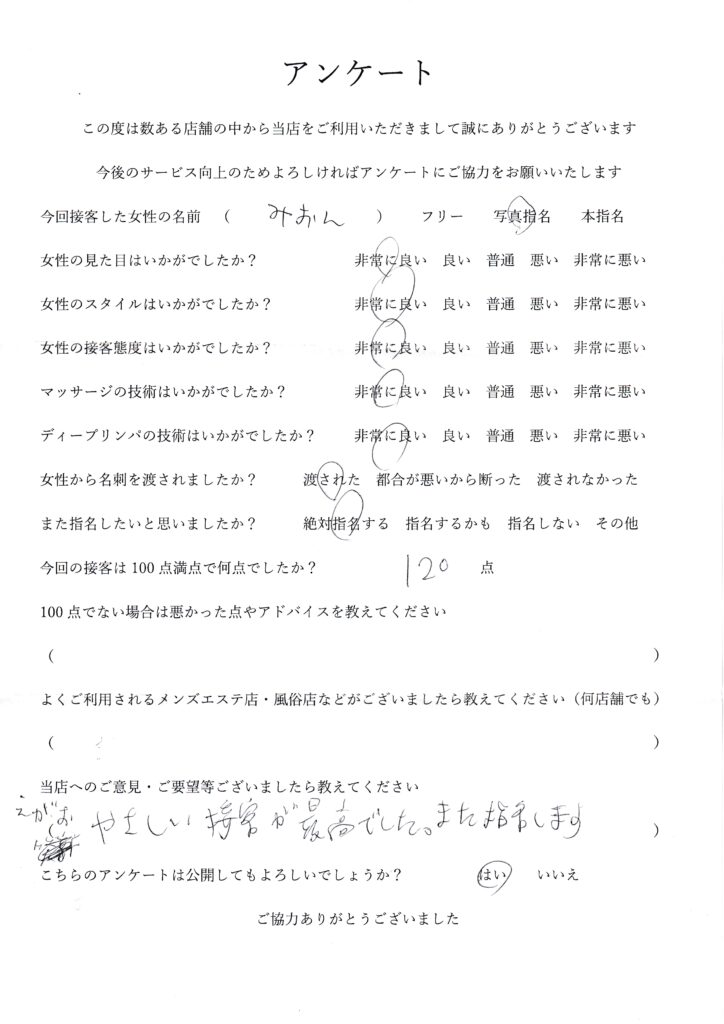 アンケート
この度は数ある店舗の中から当店をご利用いただきまして誠にありがとうございます
今後のサービス向上のためよろしければアンケートにご協力をお願いいたします
今回接客した女性の名前 ( みおん ) フリー 写真指名 本指名
女性の見た目はいかがでしたか? 非常に良い 良い 普通 悪い 非常に悪い
女性のスタイルはいかがでしたか? 非常に良い 良い 普通 悪い 非常に悪い
女性の接客態度はいかがでしたか? 非常に良い 良い 普通 悪い 非常に悪い
マッサージの技術はいかがでしたか? 非常に良い 良い 普通 悪い 非常に悪い
ディープリンパの技術はいかがでしたか? 非常に良い 良い 普通 悪い 非常に悪い
女性から名刺を渡されましたか? 渡された 都合が悪いから断った 渡されなかった
また指名したいと思いましたか? 絶対指名する 指名するかも 指名しない その他
今回の接客は100点満点で何点でしたか? 120 点
100点でない場合は悪かった点やアドバイスを教えてください
( )
よくご利用されるメンズエステ店・風俗店などがございましたら教えてください(何店舗でも)
( )
当店へのご意見・ご要望等ございましたら教えてください
( えがお やさしい接客が最高でした。また指名します )
こちらのアンケートは公開してもよろしいでしょうか? はい いいえ
ご協力ありがとうございました